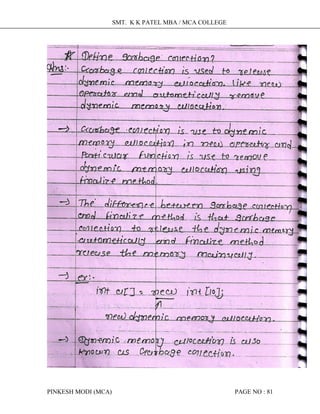 SMT. K K PATEL MBA / MCA COLLEGE
* Define garbage collection?
Ans:- Garbage collection is used to release
dynemic memory allocation. Like new
operator and autometically remove
dynemic memory allocation.
→ Garbage collection is use to dynemic
memory allocation in new operator and
Particular function is use to remove
dynemic memory allocation using
finalize method.
→ The difference between garbage collection
and finalize method is that garbage
collection to release the dynemic memory
autometically and finalize method
release the memory manually.
→ ex:-
int a[] = new int[10];
new dynemic memory allocation.
→ Dynemic memory allocation is also
known as Garbage collection.
PINKESH MODI (MCA) PAGE NO : 81